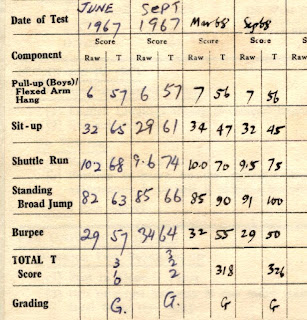 Date of Test JUNE 1967 SEPT 1967 Mar 68 Sep 68
Score Score Score Score
Component Raw T Raw T Raw T Raw T
Pull-up (Boys)/
Flexed Arm Hang 6 57 6 57 7 56 7 56
Sit-up 32 65 29 61 34 47 32 45
Shuttle Run 10.2 68 9.6 74 10.0 70 9.5 75
Standing
Broad Jump 82 63 85 66 85 90 91 100
Burpee 29 57 34 64 32 55 29 50
TOTAL T
Score 310 322 318 326
Grading G. G. G G